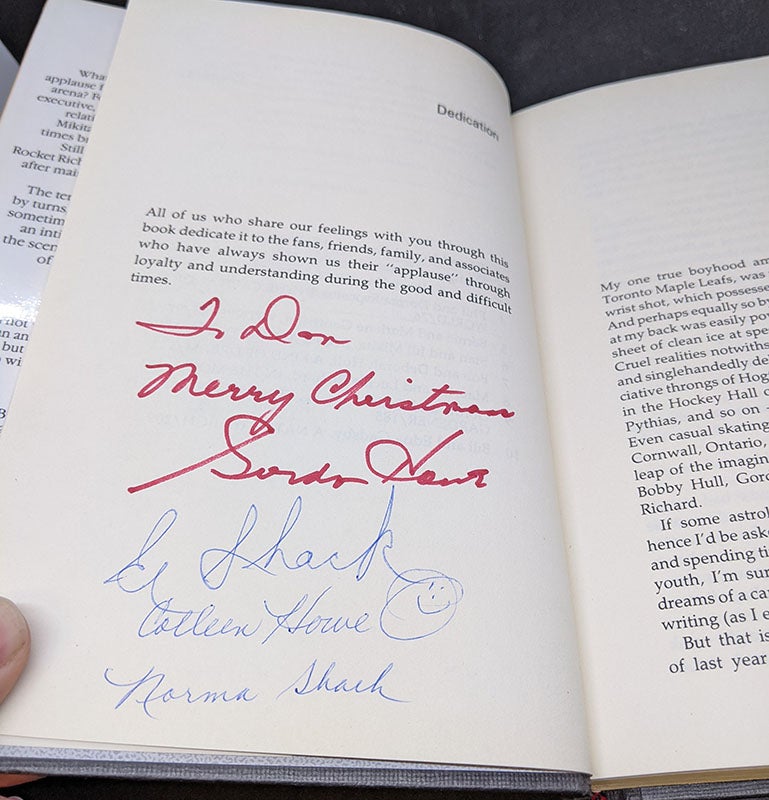 Wha
applause f
arena? F
executive,
relati
Mikita
times b
Still
Rocket Rich
after mai
The ter
by turns
sometim
an inti
the scen
of
not
n an
but
wi
B
Dedication
All of us who share our feelings with you through this
book dedicate it to the fans, friends, family, and associates
who have always shown us their "applause" through
loyalty and understanding during the good and difficult
times.
To Don
Merry Christmas
Gordie Howe
Ed Shack
Colleen Howe
Norma Shack
My one true boyhood am
Toronto Maple Leafs, was
wrist shot, which possesse
And perhaps equally so by
at my back was easily pow
sheet of clean ice at spe
Cruel realities notwiths
and singlehandedly de
ciative throngs of Hog
in the Hockey Hall o
Pythias, and so on
Even casual skating
Cornwall, Ontario,
leap of the imagin
Bobby Hull, Gord
Richard.
If some astrol
hence I'd be aske
and spending ti
youth, I'm sur
dreams of a ca
writing (as I e
But that is
of last year